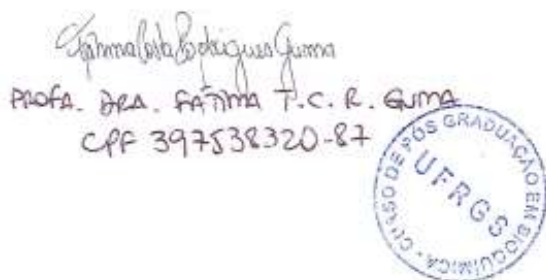 Fátima Costa Rodrigues Guma
PROFA. DRA. FÁTIMA T.C.R. GUMA
CPF 397538320-87
CURSO DE PÓS GRADUAÇÃO EM BIOQUÍMICA
UFRGS